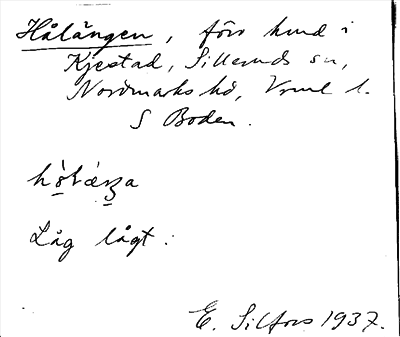 Hålången, förv hmd i
Kjestad, Silleruds sn,
Nordmarks hd, Vrml l.
S Boden.
Låg lågt:
E. Silfors 1937.